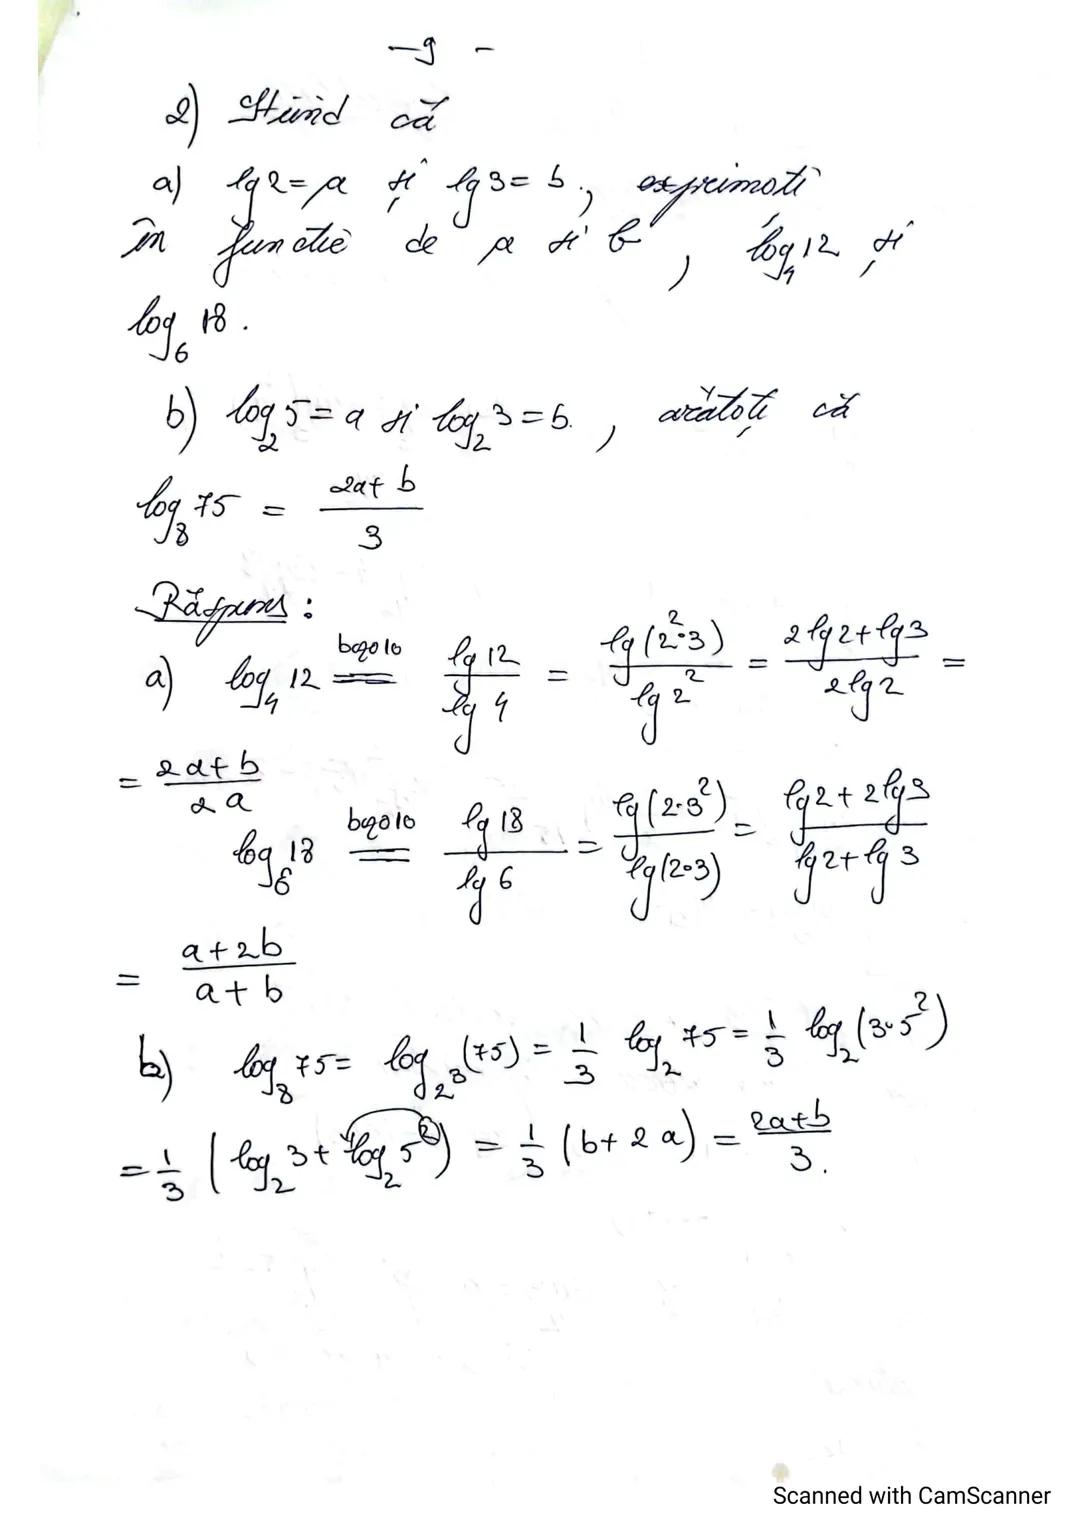 -9-
2) Știind că
a) lg 2 = a și lg 3 = b, exprimați
în funcție de a și b, log₄ 12 și
log₆ 18.
b) log₂ 5 = a și log₂ 3 = b, arătați că
log₈ 75 = (2a + b)/3
Răspuns:
a) log₄ 12 =(baza 10)= lg 12/lg 4 = lg(2²·3)/lg 2² = (2 lg 2 + lg 3)/(2 lg 2) =
= (2a + b)/(2a)
log₆ 18 =(baza 10)= lg 18/lg 6 = lg(2·3²)/lg(2·3) = (lg 2 + 2 lg 3)/(lg 2 + lg 3)
= (a + 2b)/(a + b)
b) log₈ 75 = log₂³(75) = 1/3 log₂ 75 = 1/3 log₂(3·5²)
= 1/3 (log₂ 3 + log₂ 5²) = 1/3 (b + 2a) = (2a + b)/3.
Scanned with CamScanner